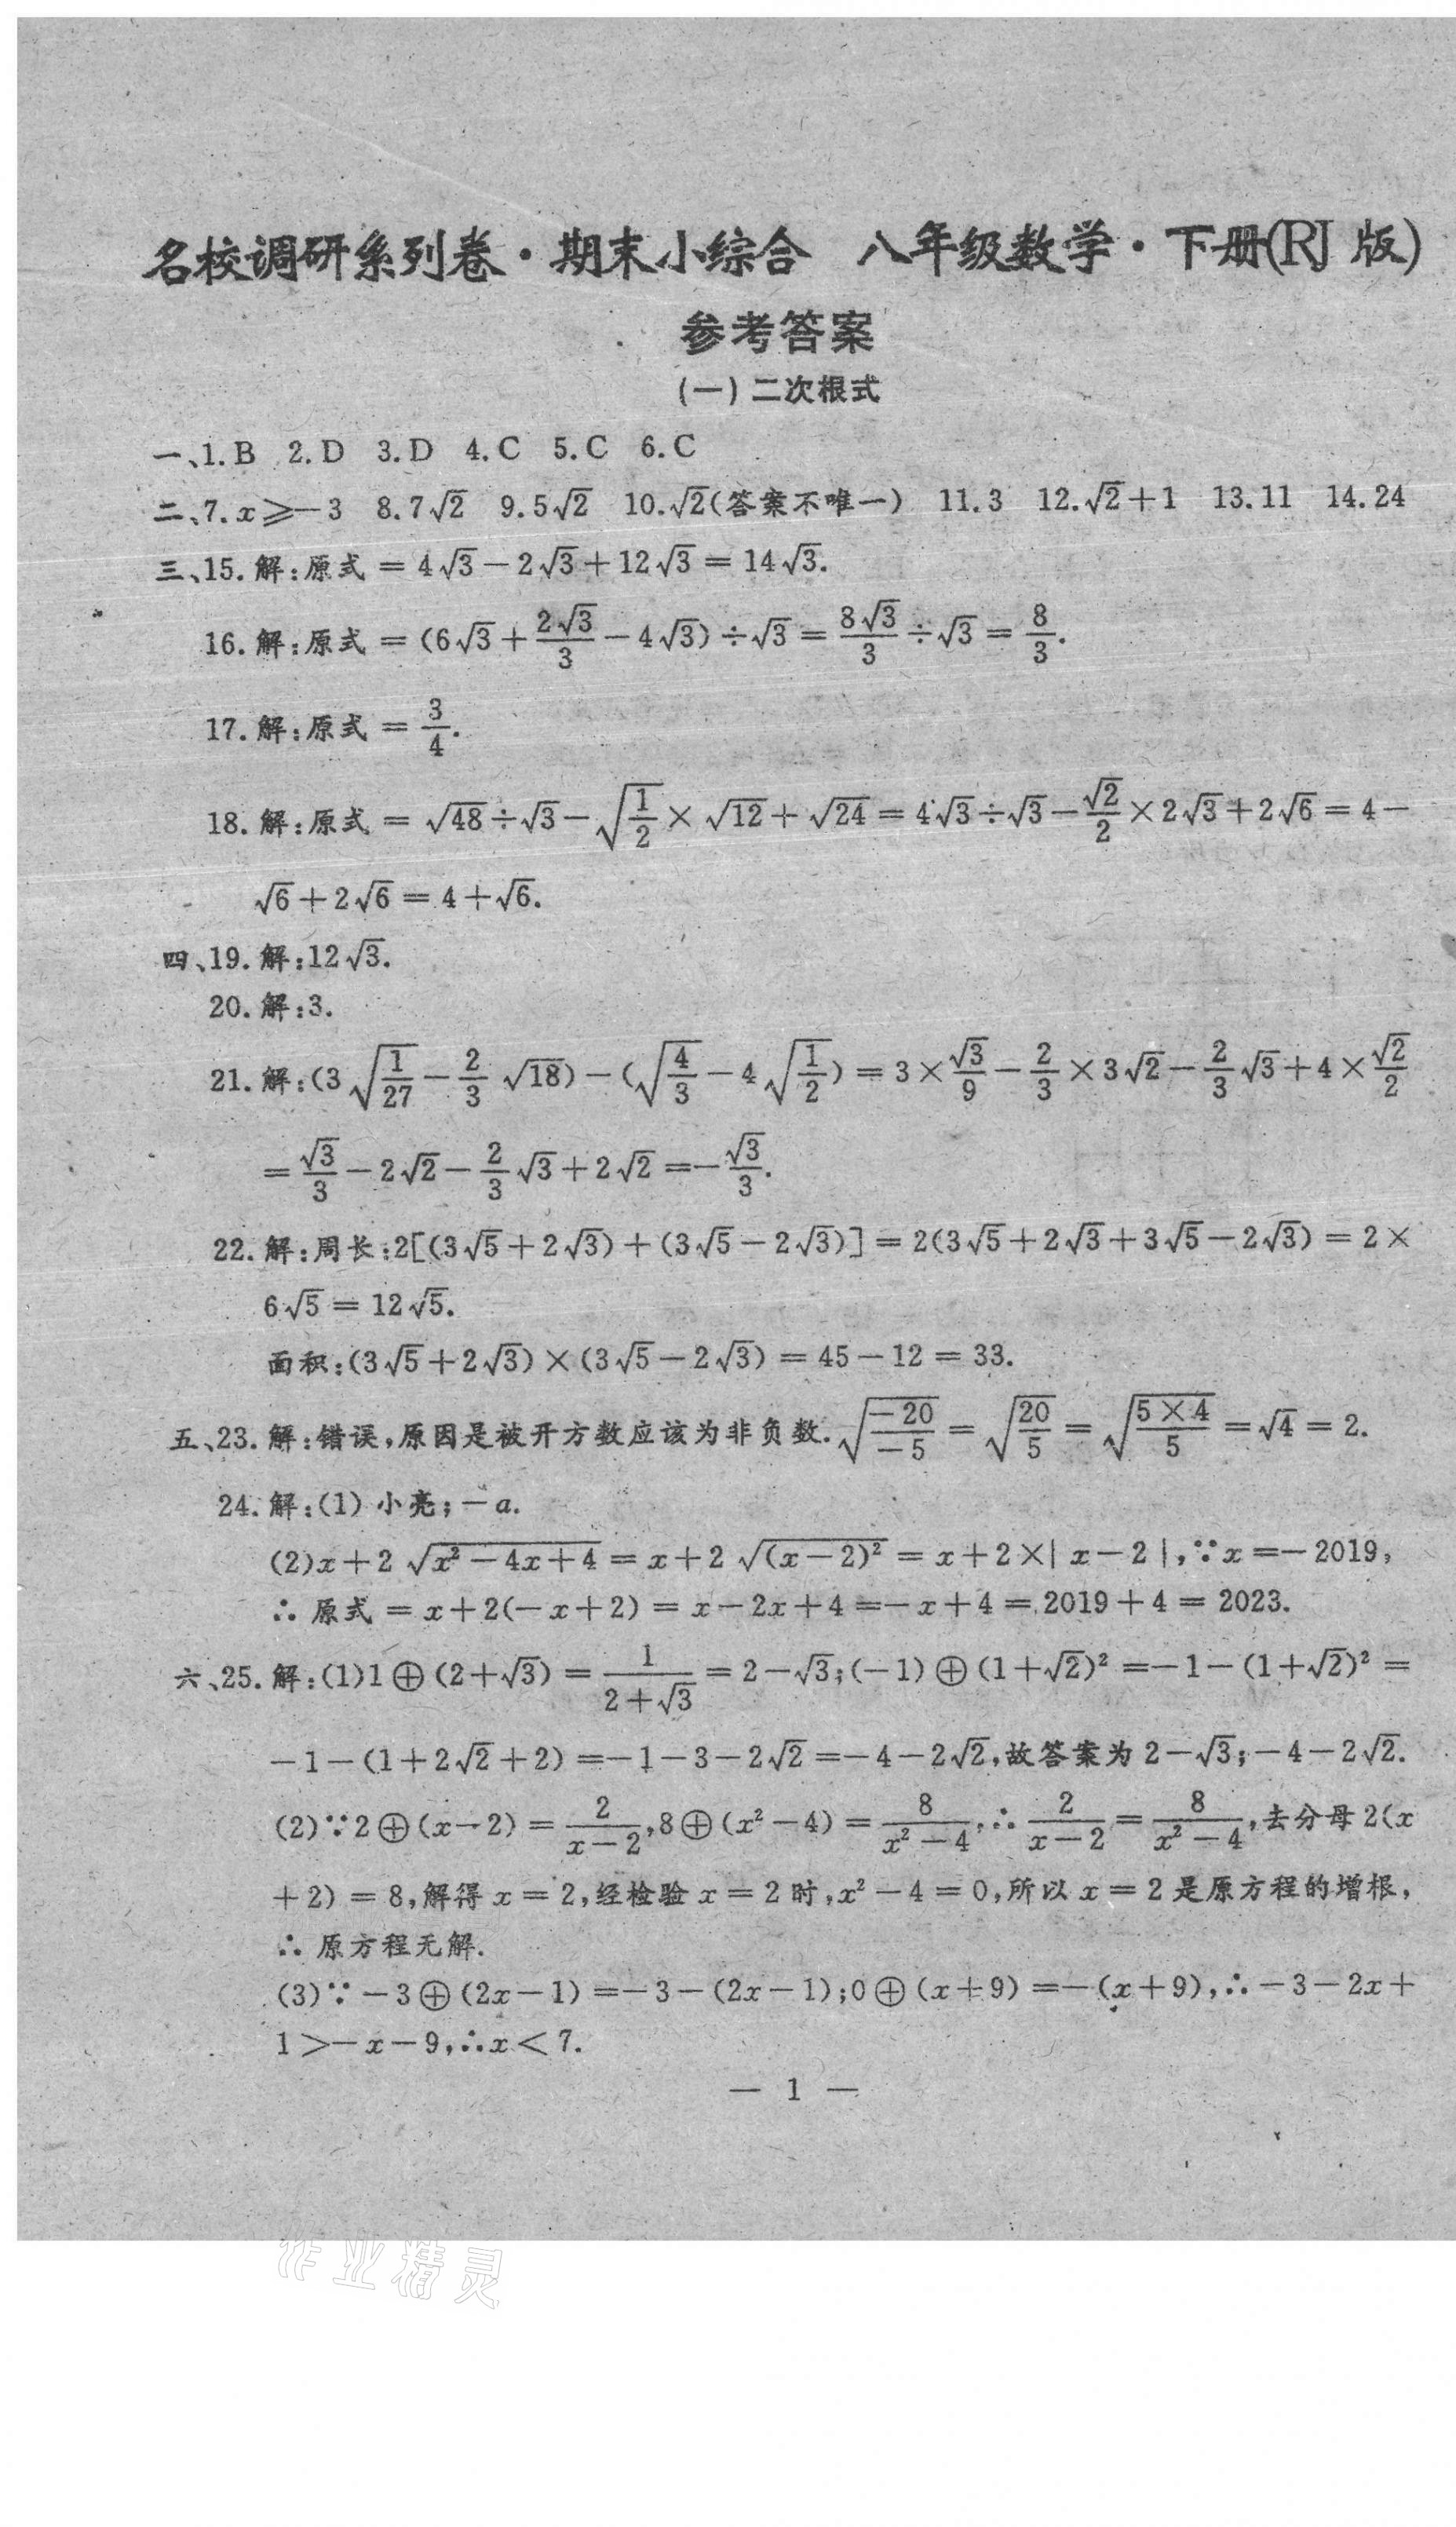 名校调研系列卷·期末小综合 八年级数学·下册(RJ 版)
参考答案
(一)二次根式
一、1.B 2.D 3.D 4.C 5.C 6.C
二、7.x≥-3 8.7√2 9.5√2 10.√2(答案不唯一) 11.3 12.√2+1 13.11 14.24
三、15.解:原式=4√3-2√3+12√3=14√3.
16.解:原式=(6√3+2√3/3-4√3)÷√3=8√3/3÷√3=8/3.
17.解:原式=3/4.
18.解:原式=√48÷√3-√(1/2)×√12+√24=4√3÷√3-√2/2×2√3+2√6=4-
√6+2√6=4+√6.
四、19.解:12√3.
20.解:3.
21.解:(3√(1/27)-2/3√18)-(√(4/3)-4√(1/2))=3×√3/9-2/3×3√2-2/3√3+4×√2/2
=√3/3-2√2-2/3√3+2√2=-√3/3.
22.解:周长:2[(3√5+2√3)+(3√5-2√3)]=2(3√5+2√3+3√5-2√3)=2×
6√5=12√5.
面积:(3√5+2√3)×(3√5-2√3)=45-12=33.
五、23.解:错误,原因是被开方数应该为非负数.√(-20/-5)=√(20/5)=√(5×4/5)=√4=2.
24.解:(1)小亮;-a.
(2)x+2√(x²-4x+4)=x+2√((x-2)²)=x+2×|x-2|,∵x=-2019,
∴原式=x+2(-x+2)=x-2x+4=-x+4=2019+4=2023.
六、25.解:(1)1⊕(2+√3)=1/(2+√3)=2-√3;(-1)⊕(1+√2)²=-1-(1+√2)²=
-1-(1+2√2+2)=-1-3-2√2=-4-2√2,故答案为2-√3;-4-2√2.
(2)∵2⊕(x-2)=2/(x-2),8⊕(x²-4)=8/(x²-4),∴2/(x-2)=8/(x²-4),去分母2(x
+2)=8,解得x=2,经检验x=2时,x²-4=0,所以x=2是原方程的增根,
∴原方程无解.
(3)∵-3⊕(2x-1)=-3-(2x-1);0⊕(x+9)=-(x+9),∴-3-2x+
1>-x-9,∴x<7.
— 1 —
作业精灵